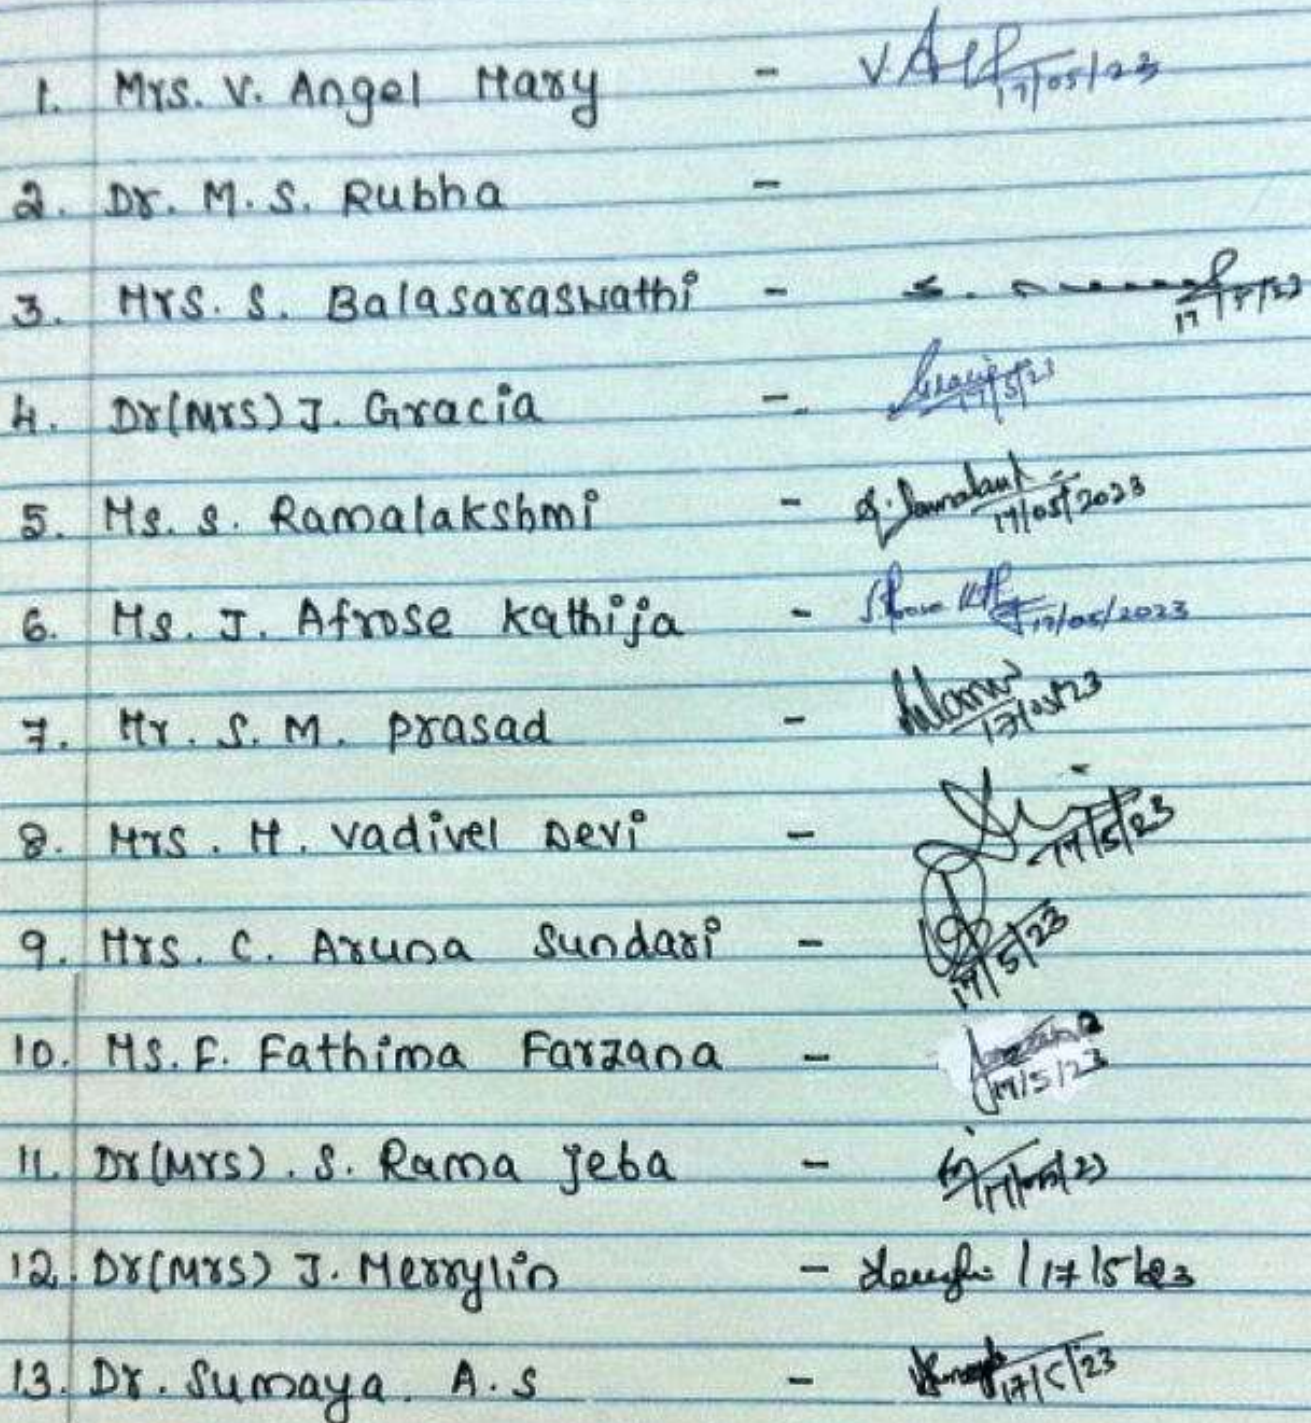 1. Mrs. V. Angel Mary - V. 17/05/23
2. Dr. M. S. Rubha -
3. Mrs. S. Balasaraswathi - S. 17/5/23
4. Dr(Mrs) J. Gracia - 17/5/23
5. Ms. S. Ramalakshmi - 17/05/2023
6. Ms. J. Afrose Kathija - 17/05/2023
7. Mr. S. M. Prasad - 17/05/23
8. Mrs. M. Vadivel Devi - 17/5/23
9. Mrs. C. Aruna Sundari - 17/5/23
10. Ms. F. Fathima Farzana - 17/5/23
11. Dr(Mrs). S. Rama Jeba - 17/05/23
12. Dr(Mrs) J. Merrylin - /17/5/23
13. Dr. Sumaya. A.S - 17/5/23